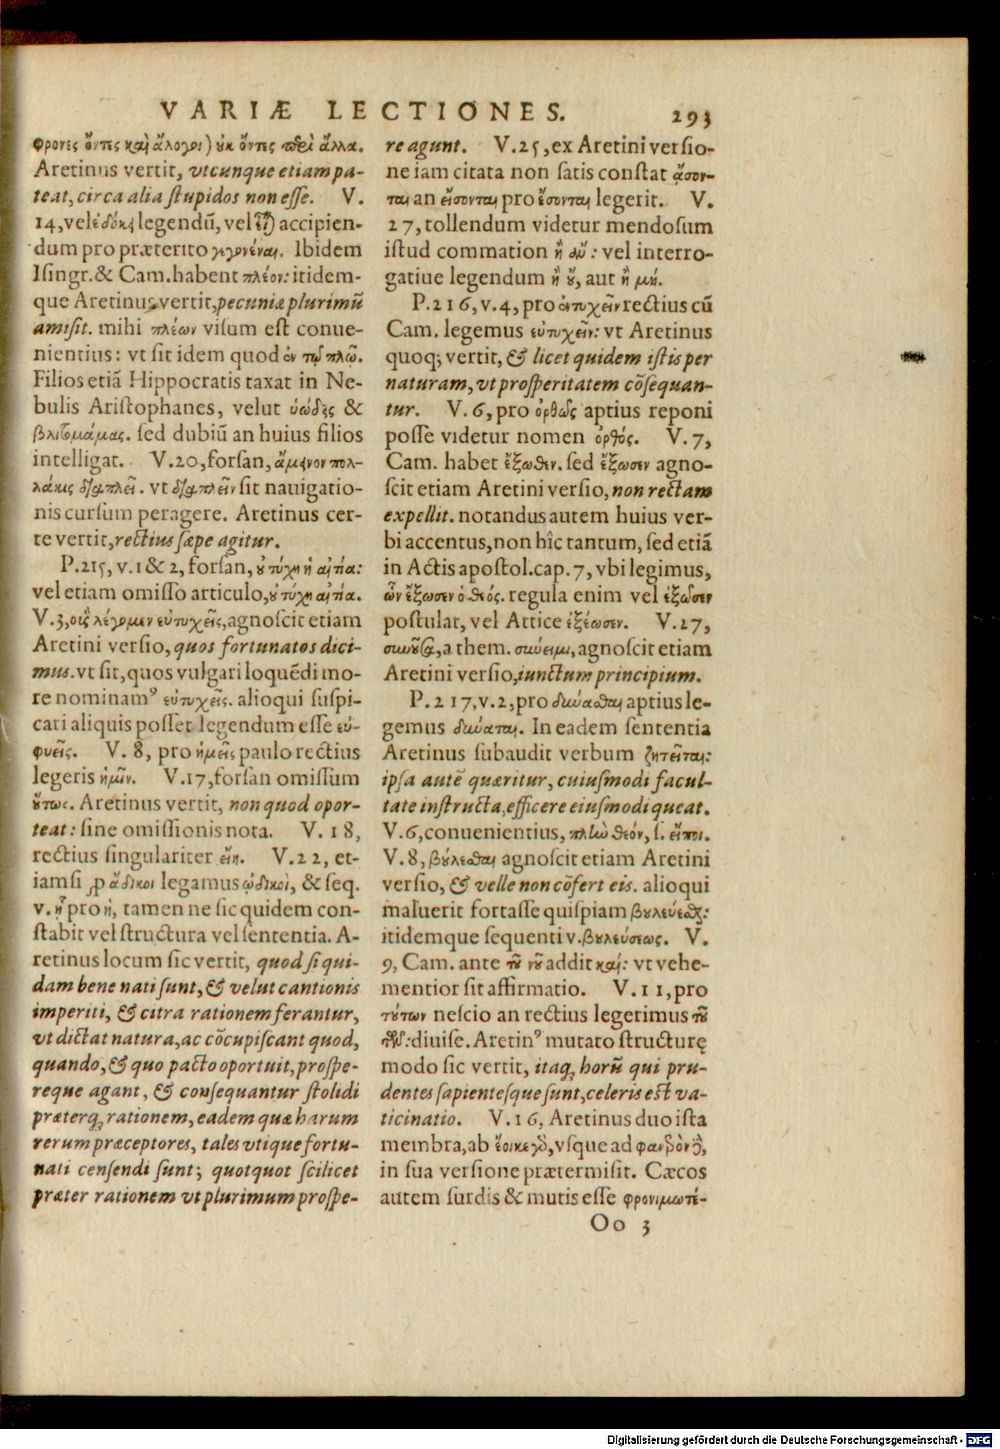 VARIÆ LECTIONES. 293
φρονες ὄντες καὶ ἄλογοι) οὐκ ὄντες περὶ ἄλλα.
Aretinus vertit, vtcunque etiam pa-
teat, circa alia ſtupidos non eſſe. V.
14, vel ἐδόκει legendũ, vel accipien-
dum pro præterito γεγονέναι. Ibidem
Iſingr. & Cam. habent πλέον: itidem-
que Aretinus vertit, pecuniæ plurimũ
amiſit. mihi πλέων viſum eſt conue-
nientius: vt ſit idem quod ἐν τῷ πλῷ.
Filios etiã Hippocratis taxat in Ne-
bulis Ariſtophanes, velut ὑώδεις &
βλιτομάμας. ſed dubiũ an huius filios
intelligat. V. 20, forſan, ἄμεινον πολ-
λάκις διαπλεῖ. vt διαπλεῖν ſit nauigatio-
nis curſum peragere. Aretinus cer-
te vertit, rectius ſæpe agitur.
P. 215, v. 1 & 2, forſan, οὐ τύχη ἡ αἰτία:
vel etiam omiſſo articulo, οὐ τύχη αἰτία.
V. 3, οἷς λέγομεν εὐτυχεῖς, agnoſcit etiam
Aretini verſio, quos fortunatos dici-
mus. vt ſit, quos vulgari loquẽdi mo-
re nominamꝰ εὐτυχεῖς. alioqui ſuſpi-
cari aliquis poſſet legendum eſſe εὐ-
φυεῖς. V. 8, pro ἡμεῖς paulo rectius
legeris ἡμῶν. V. 17, forſan omiſſum
οὕτως. Aretinus vertit, non quod opor-
teat: ſine omiſſionis nota. V. 18,
rectius ſingulariter εἴη. V. 22, et-
iamſi pro ἄδικοι legamus ᾠδικοὶ, & ſeq.
v. ᾗ pro ἡ, tamen ne ſic quidem con-
ſtabit vel ſtructura vel ſententia. A-
retinus locum ſic vertit, quod ſi qui-
dam bene nati ſunt, & velut cantionis
imperiti, & citra rationem ferantur,
vt dictat natura, ac cõcupiſcant quod,
quando, & quo pacto oportuit, proſpe-
reque agant, & conſequantur ſtolidi
præterq; rationem, eadem quæ harum
rerum præceptores, tales vtique fortu-
nati cenſendi ſunt; quotquot ſcilicet
præter rationem vt plurimum proſpe-
re agunt. V. 25, ex Aretini verſio-
ne iam citata non ſatis conſtat ᾄσον-
ται an εἴσονται pro ἔσονται legerit. V.
27, tollendum videtur mendoſum
iſtud commation ἢ οὖν: vel interro-
gatiue legendum ἢ οὔ, aut ἢ μή.
P. 216, v. 4, pro ἐντυχεῖν rectius cũ
Cam. legemus εὐτυχεῖν: vt Aretinus
quoq; vertit, & licet quidem iſtis per
naturam, vt proſperitatem cõſequan-
tur. V. 6, pro ὀρθῶς aptius reponi
poſſe videtur nomen ὀρθός. V. 7,
Cam. habet ἔξωθεν. ſed ἔξωσεν agno-
ſcit etiam Aretini verſio, non rectam
expellit. notandus autem huius ver-
bi accentus, non hîc tantum, ſed etiã
in Actis apoſtol. cap. 7, vbi legimus,
ὧν ἔξωσεν ὁ θεός. regula enim vel ἐξῶσεν
poſtulat, vel Attice ἐξέωσεν. V. 27,
συνοῦσα, a them. σύνειμι, agnoſcit etiam
Aretini verſio, iunctum principium.
P. 217, v. 2, pro δύνασθαι aptius le-
gemus δύναται. In eadem ſententia
Aretinus ſubaudit verbum ζητεῖται:
ipſa autẽ quæritur, cuiuſmodi facul-
tate inſtructa, efficere eiuſmodi queat.
V. 6, conuenientius, πλὴν θεόν, ſ. εἴποι.
V. 8, βούλεσθαι agnoſcit etiam Aretini
verſio, & velle non cõfert eis. alioqui
maluerit fortaſſe quiſpiam βουλεύεσθαι:
itidemque ſequenti v. βουλεύσεως. V.
9, Cam. ante τοῦ νοῦ addit καὶ: vt vehe-
mentior ſit affirmatio. V. 11, pro
τούτων neſcio an rectius legerimus τοῦ
τῶν: diuiſe. Aretinꝰ mutato ſtructurę
modo ſic vertit, itaq; horũ qui pru-
dentes ſapienteſque ſunt, celeris eſt va-
ticinatio. V. 16, Aretinus duo iſta
membra, ab ἔοικε γὰρ, vſque ad
in ſua verſione prætermiſit. Cæcos
autem ſurdis & mutis eſſe φρονιμωτέ-
Oo 3
Digitalisierung gefördert durch die Deutsche Forschungsgemeinschaft - DFG